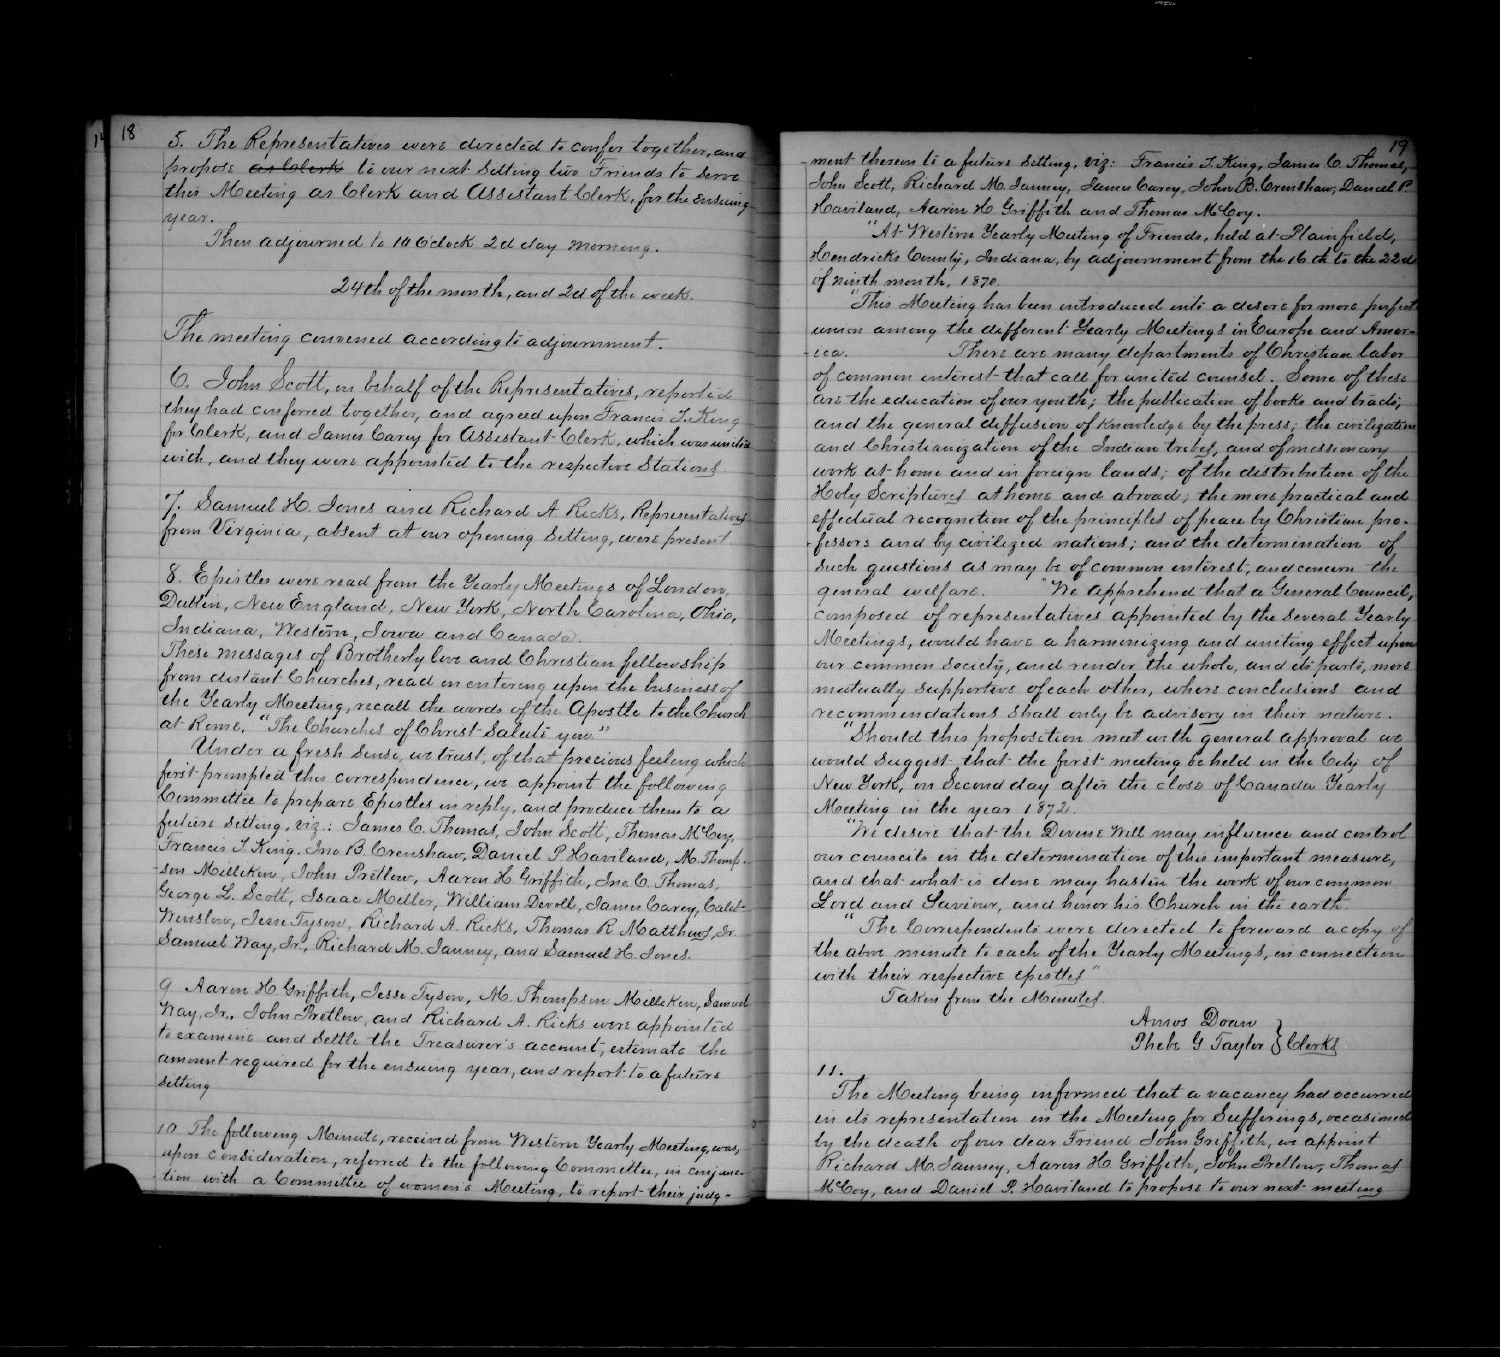 18
5. The Representatives were directed to confer together, and
propose as Clerk to our next Sitting two Friends to serve
this Meeting as Clerk and Assistant Clerk, for the ensuing
year.
Then adjourned to 10 O'clock 2d day morning.
24th of the month, and 2d of the week.
The meeting convened according to adjournment.
6. John Scott, on behalf of the Representatives, reported
they had conferred together, and agreed upon Francis T. King
for Clerk, and James Carey for Assistant Clerk, which was united
with, and they were appointed to the respective Stations
7. Samuel H. Jones and Richard A Ricks, Representatives
from Virginia, absent at our opening Sitting, were present.
8. Epistles were read from the Yearly Meetings of London,
Dublin, New England, New York, North Carolina, Ohio,
Indiana, Western, Iowa and Canada.
These messages of Brotherly love and Christian fellowship
from distant Churches, read on entering upon the business of
the Yearly Meeting, recall the words of the Apostle to the Church
at Rome, "The Churches of Christ Salute you."
Under a fresh sense, we trust, of that precious feeling which
first prompted this correspondence, we appoint the following
Committee to prepare Epistles in reply, and produce them to a
future sitting, viz.: James C. Thomas, John Scott, Thomas McCoy,
Francis T. King. Jno B. Crenshaw, Daniel P. Haviland, M. Thomp-
-son Milliken, John Pretlow, Aaron H. Griffith, Jno. C. Thomas,
George L. Scott, Isaac Miller, William Devoll, James Carey, Caleb
Winslow, Jesse Tyson, Richard A. Ricks, Thomas R. Matthews, Jr.
Samuel Way, Jr., Richard M. Janney, and Samuel H. Jones.
9. Aaron H. Griffith, Jesse Tyson, M. Thompson Milliken, Samuel
Way, Jr., John Pretlow, and Richard A. Ricks were appointed
to examine and settle the Treasurer's account, estimate the
amount required for the ensuing year, and report to a future
sitting
10 The following Minute, received from Western Yearly Meeting, was,
upon consideration, referred to the following Committee, in conjunc-
tion with a Committee of women's Meeting, to report their judg-
19
ment thereon to a future sitting, viz: Francis T. King, James C. Thomas,
John Scott, Richard M. Janney, James Carey, John B. Crenshaw, Daniel P.
Haviland, Aaron H Griffith and Thomas McCoy.
"At Western Yearly Meeting of Friends, held at Plainfield,
Hendricks County, Indiana, by adjournment from the 16th to the 22d
of ninth month, 1870.
"This Meeting has been introduced into a desire for more perfect
union among the different Yearly Meetings in Europe and Amer-
-ica. There are many departments of Christian labor
of common interest that call for united counsel. Some of these
are the education of our youth; the publication of books and tracts;
and the general diffusion of knowledge by the press; the civilization
and Christianization of the Indian tribes, and of missionary
work at home and in foreign lands; of the distribution of the
Holy Scriptures at home and abroad; the more practical and
effectual recognition of the principles of peace by Christian pro-
-fessors and by civilized nations; and the determination of
such questions as may be of common interest, and concern the
general welfare. "We apprehend that a General Council,
composed of representatives appointed by the several Yearly
Meetings, would have a harmonizing and uniting effect upon
our common Society, and render the whole, and its parts, more
mutually supportive of each other, whose conclusions and
recommendations shall only be advisory in their nature.
"Should this proposition meet with general approval we
would suggest that the first meeting be held in the City of
New York, on Second day after the close of Canada Yearly
Meeting in the year 1872.
"We desire that the Divine Will may influence and control
our councils in the determination of this important measure,
and that what is done may hasten the work of our common
Lord and Saviour, and honor his Church in the earth.
"The Correspondents were directed to forward a copy of
the above minute to each of the Yearly Meetings, in connection
with their respective epistles"
Taken from the Minutes.
Amos Doan
Phebe G Taylor } Clerks
11.
The Meeting being informed that a vacancy had occurred
in its representation in the Meeting for Sufferings, occasioned
by the death of our dear Friend John Griffith, we appoint
Richard M. Janney, Aaron H. Griffith, John Pretlow, Thomas
McCoy, and Daniel P. Haviland to propose to our next meeting